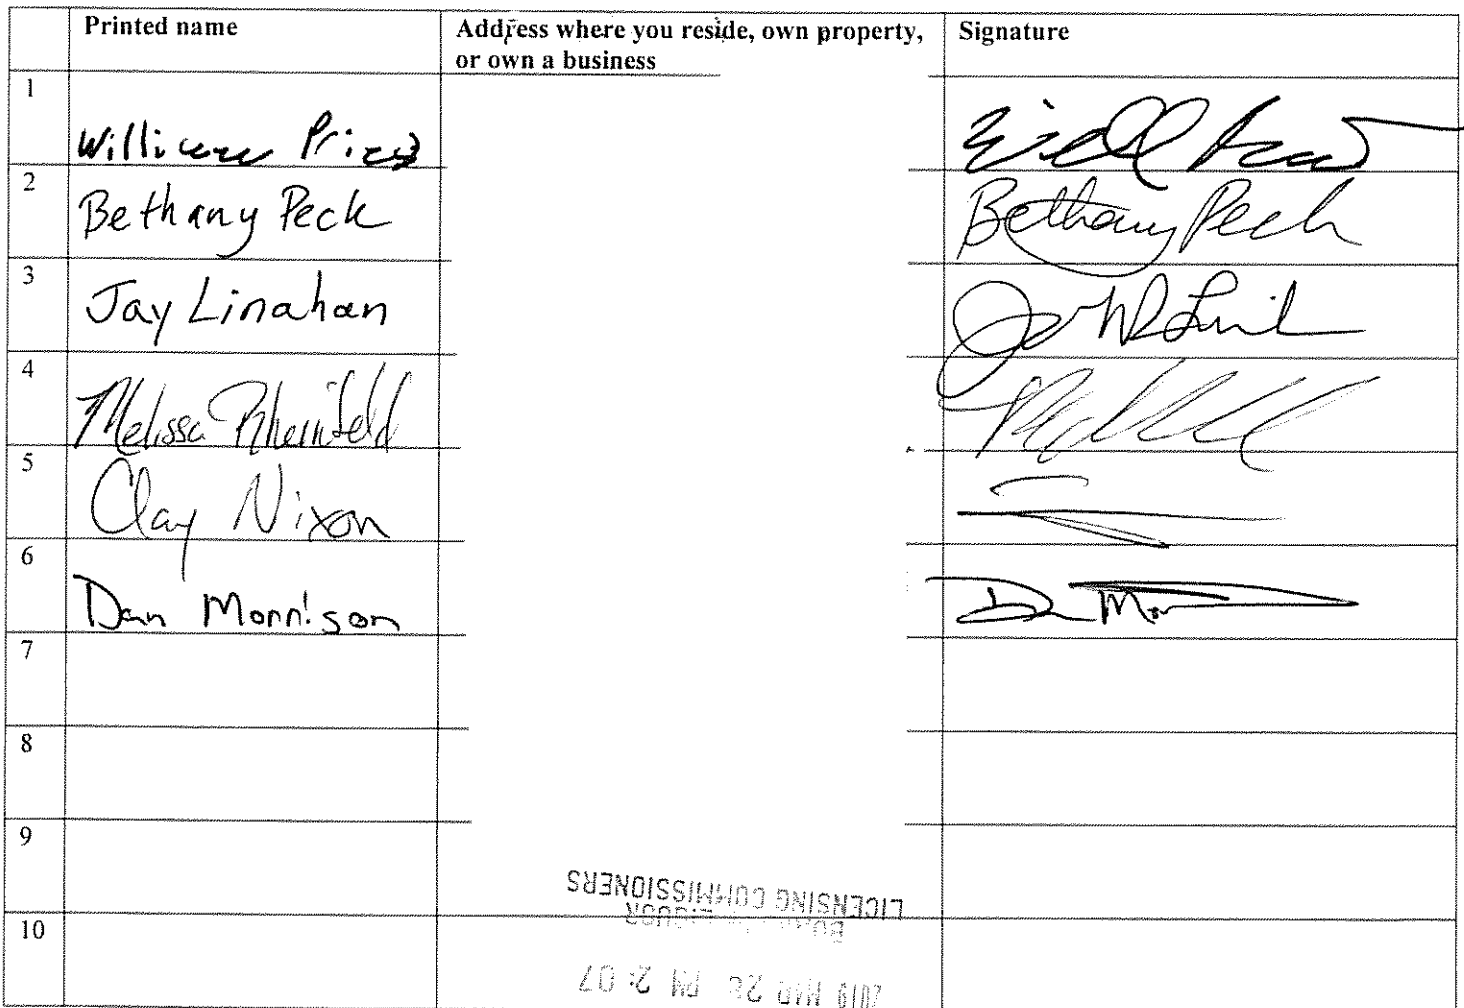 Printed name
Address where you reside, own property,
or own a business
Signature
1
William Price
2
Bethany Peck
Bethany Peck
3
Jay Linahan
4
Melissa Rheinfeld
5
Clay Nixon
6
Dan Morrison
7
8
9
10
LICENSING COMMISSIONERS
LIQUOR
2019 MAR 28 PM 2:07